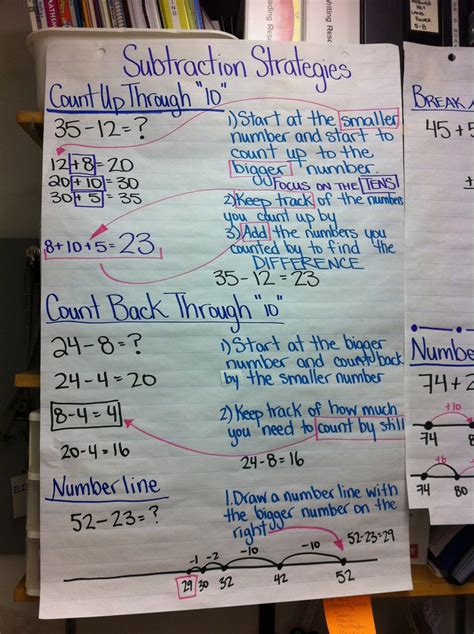 Subtraction Strategies
Count Up Through "10"
35-12=?
12+8=20
20+10=30
30+5=35
8+10+5=23
1) Start at the smaller
number and start to
count up to the
bigger number.
FOCUS ON THE TENS
2) Keep track of the numbers
you count up by
3) Add the numbers you
counted by to find the
DIFFERENCE
35-12=23
Count Back Through "10"
24-8=?
24-4=20
8-4=4
20-4=16
1) Start at the bigger
number and count back
by the smaller number
2) Keep track of how much
you need to count by still
24-8=16
Number line
52-23=?
1. Draw a number line with
the bigger number on the
right
52-23=29
-1 -2 -10 -10
29 30 32 42 52
BREAK
45+5
Numbe
74+2
+10
74 8
+6
74 80